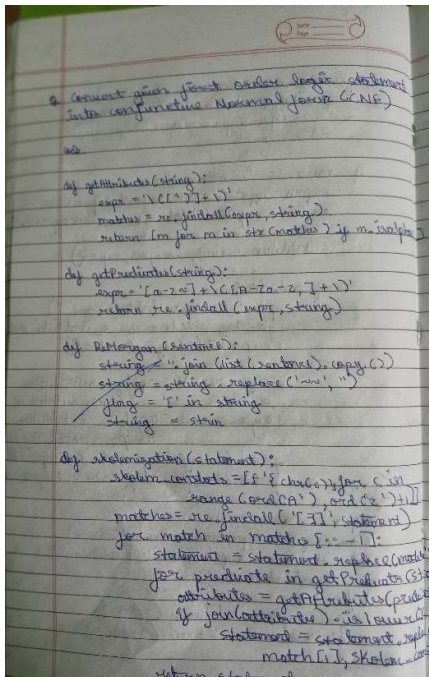 Date
Page
Q Convert given first order logic statement
into conjunctive Normal form (CNF)
code
def getAttributes(string):
expr = '\([^)]+\)'
matches = re.findall(expr, string)
return [m for m in str(matches) if m.isalpha
def getPredicates(string):
expr = '[a-z~]+\([A-Za-z,]+\)'
return re.findall(expr, string)
def DeMorgan(sentence):
string = ''.join(list(sentence).copy())
string = string.replace('~~','')
flag = '[' in string
string = strin
def skolemization(statement):
skolem_constants = [f'{chr(c)}' for c in
range(ord('A'), ord('Z')+1)]
matches = re.findall('[∃]', statement)
for match in matches[::-1]:
statement = statement.replace(match
for predicate in getPredicates(st
attributes = getAttributes(predic
if join(attributes).islower(
statement = statement.repla
match[1], skolem_con
return statem